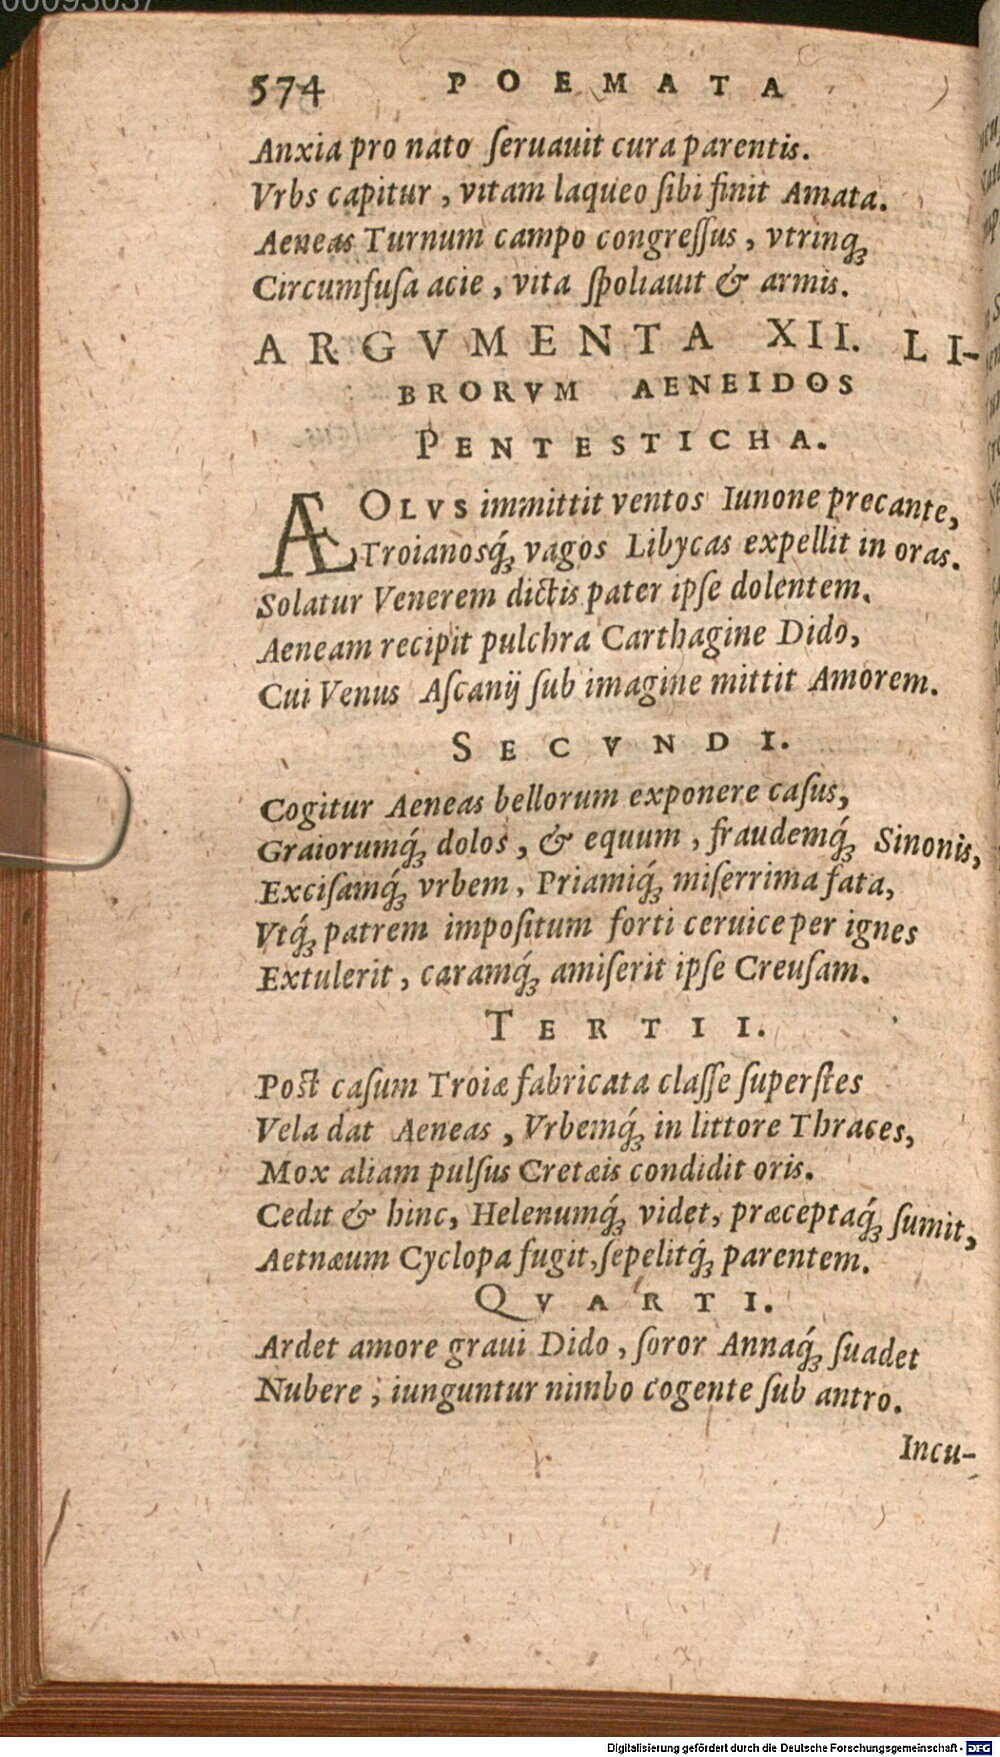 574 POEMATA
Anxia pro nato ſeruauit cura parentis.
Vrbs capitur, vitam laqueo ſibi finit Amata.
Aeneas Turnum campo congreſſus, vtrinqꝫ
Circumfuſa acie, vita ſpoliauit & armis.
ARGVMENTA XII. LI-
BRORVM AENEIDOS
PENTESTICHA.
ÆOLVS immittit ventos Iunone precante,
Troianosq́ꝫ vagos Libycas expellit in oras.
Solatur Venerem dictis pater ipſe dolentem.
Aeneam recipit pulchra Carthagine Dido,
Cui Venus Aſcanij ſub imagine mittit Amorem.
SECVNDI.
Cogitur Aeneas bellorum exponere caſus,
Graiorumq́ꝫ dolos, & equum, fraudemq́ꝫ Sinonis,
Exciſamq́ꝫ vrbem, Priamiq́ꝫ miſerrima fata,
Vtq́ꝫ patrem impoſitum forti ceruice per ignes
Extulerit, caramq́ꝫ amiſerit ipſe Creuſam.
TERTII.
Poſt caſum Troiæ fabricata claſſe ſuperſtes
Vela dat Aeneas, Vrbemq́ꝫ in littore Thraces,
Mox aliam pulſus Cretæis condidit oris.
Cedit & hinc, Helenumq́ꝫ videt, præceptaq́ꝫ ſumit,
Aetnæum Cyclopa fugit, ſepelitq́ꝫ parentem.
QVARTI.
Ardet amore graui Dido, ſoror Annaq́ꝫ ſuadet
Nubere; iunguntur nimbo cogente ſub antro.
Incu-
Digitalisierung gefördert durch die Deutsche Forschungsgemeinschaft - DFG